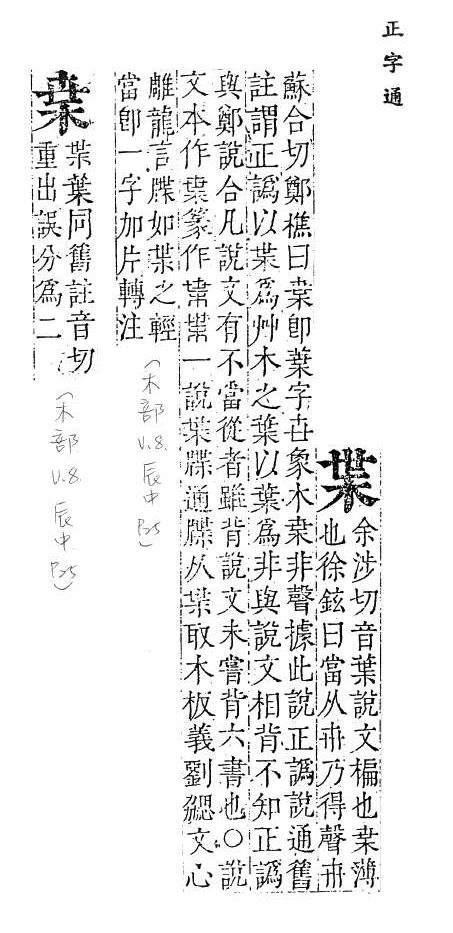 正字通
枼
余涉切音葉說文楄也枽薄
也徐鉉曰當从卅乃得聲卅
蘇合切鄭樵曰枽卽葉字象木枽非聲據此說正譌說通舊
註謂正譌以枼爲艸木之葉以葉爲非與說文相背不知正譌
與鄭說合凡說文有不當從者雖背說文未嘗背六書也○說
文本作枽篆作一說枼牒通牒从枼取木板義劉勰文心
雕龍言牒如枼之輕
當卽一字加片轉注
(木部 V.8. 辰中 P25)
枽
枼葉同舊註音切
重出誤分爲二
(木部 V.8. 辰中 P25)